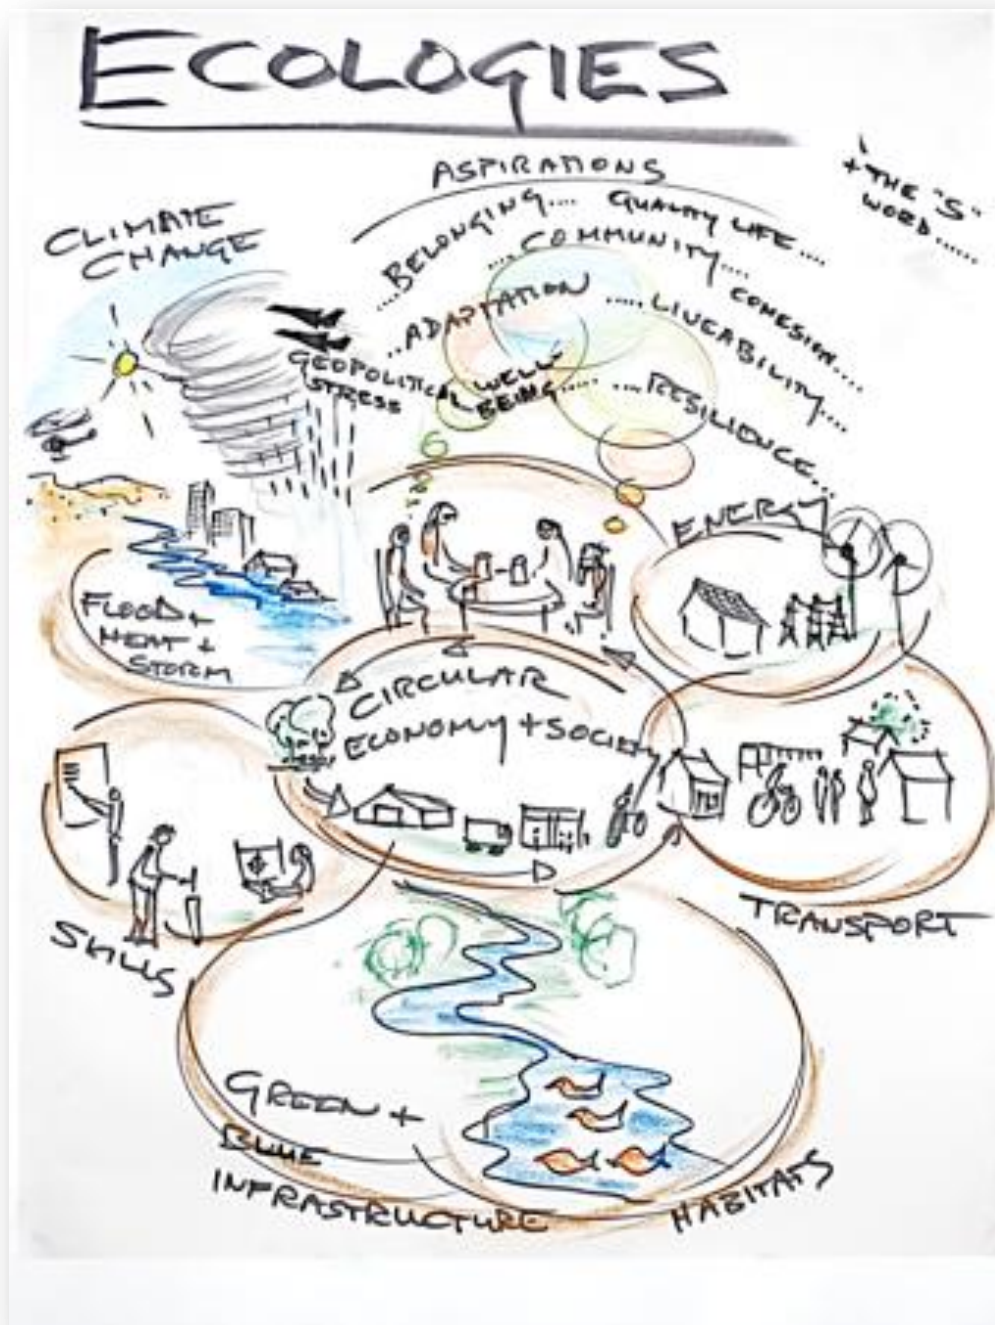 ECOLOGIES
ASPIRATIONS
+ THE "S"
WORD......
CLIMATE
CHANGE
...BELONGING....
QUALITY LIFE....
...COMMUNITY....
COHESION....
..ADAPTATION
.....LIVEABILITY....
GEOPOLITICAL
STRESS
WELL-
BEING.....
....RESILIENCE...
ENERGY
FLOOD +
HEAT +
STORM
CIRCULAR
ECONOMY + SOCIETY
SKILLS
TRANSPORT
GREEN +
BLUE
INFRASTRUCTURE
HABITATS